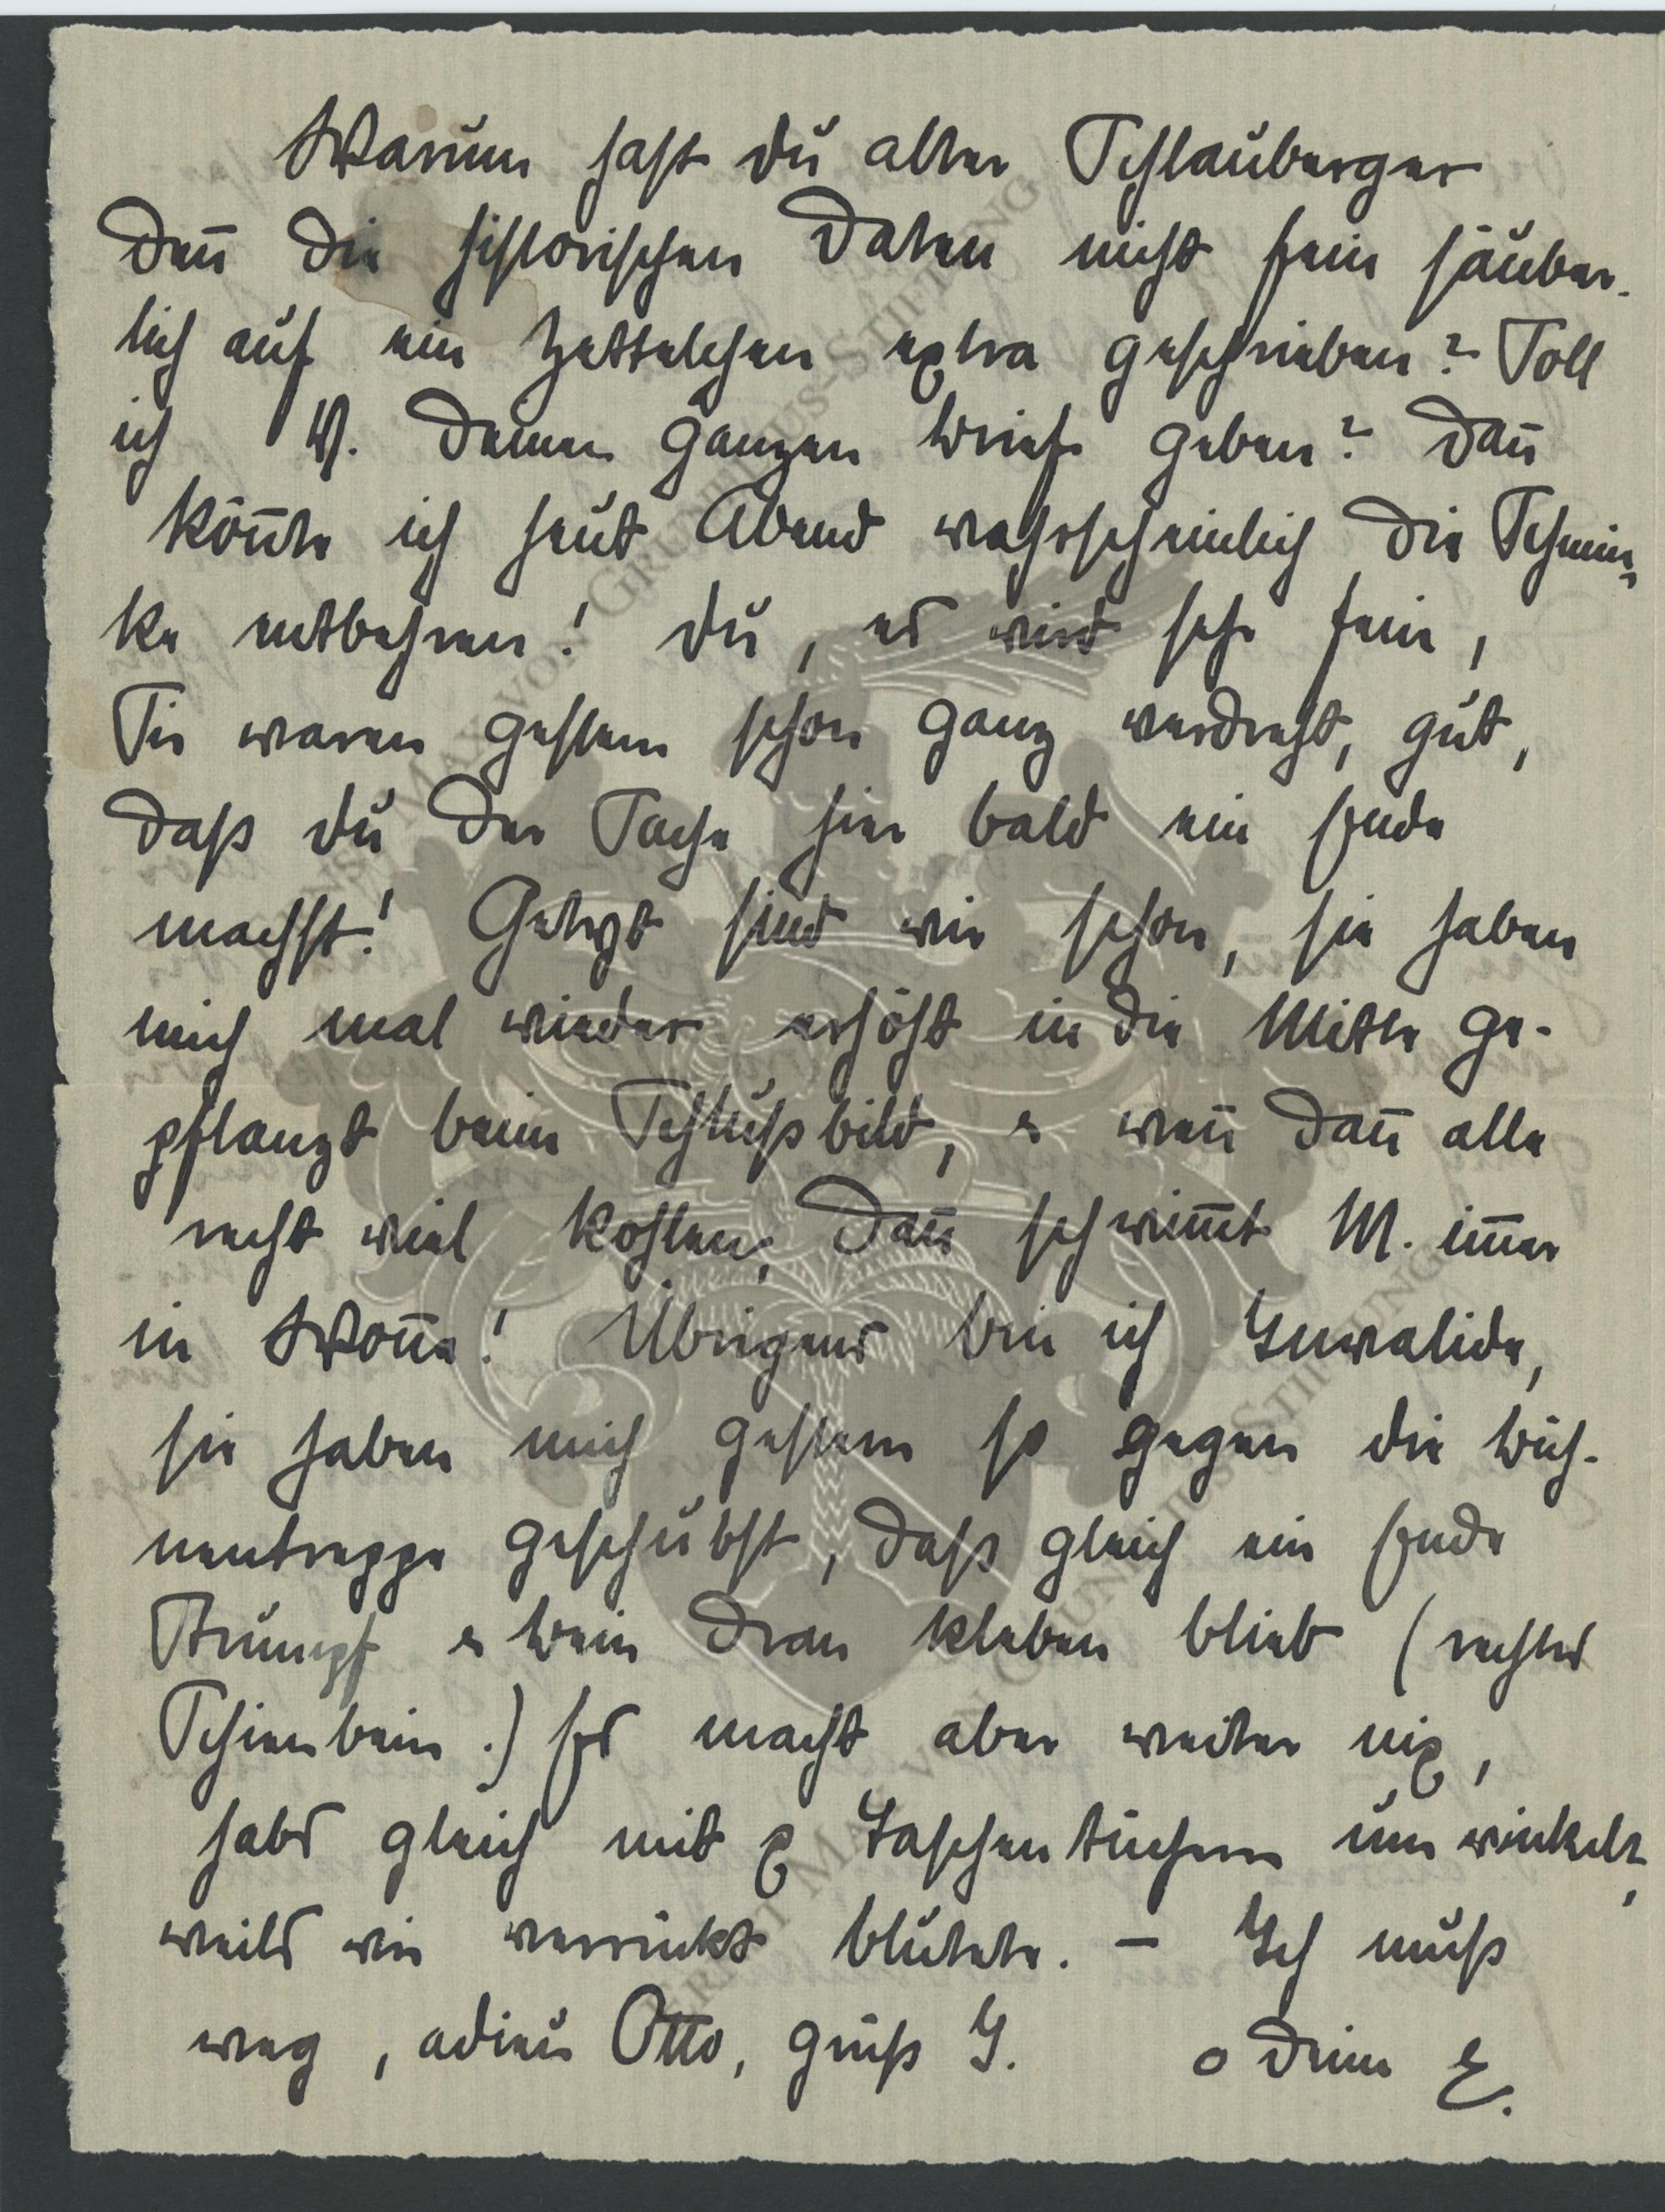 Warum hast du alter Schlauberger
deñ die historischen Daten nicht fein säuber-
lich auf ein Zettelchen extra geschrieben? Soll
ich W. Deinen ganzen Brief geben? Dañ
köñte ich heut Abend wahrscheinlich die Schmin-
ke entbehren! Du, es wird sehr fein,
Sie waren gestern schon ganz verdreht, gut,
daß du der Sache hier bald ein Ende
machst! Getagt sind wir schon, sie haben
mich mal wieder erhöht in die Mitte ge-
pflanzt beim Schlußbild, & weñ dañ alle
recht viel kohlen, dañ schwim̃t M. im̃er
in Woñe! Übrigens bin ich Invalide,
sie haben mich gestern so gegen die Büh-
nentreppe geschubst, daß gleich ein Ende
Strumpf & Bein dran kleben blieb (rechtes
Schienbein.) Es macht aber weiter nix,
habs gleich mit x Taschentüchern umwinkelt,
weils wie verrückt blutete. – Ich muß
weg, adieu Otto, grüß I. o Deine E.
MAX VON GRUNDHERR-STIFTUNG